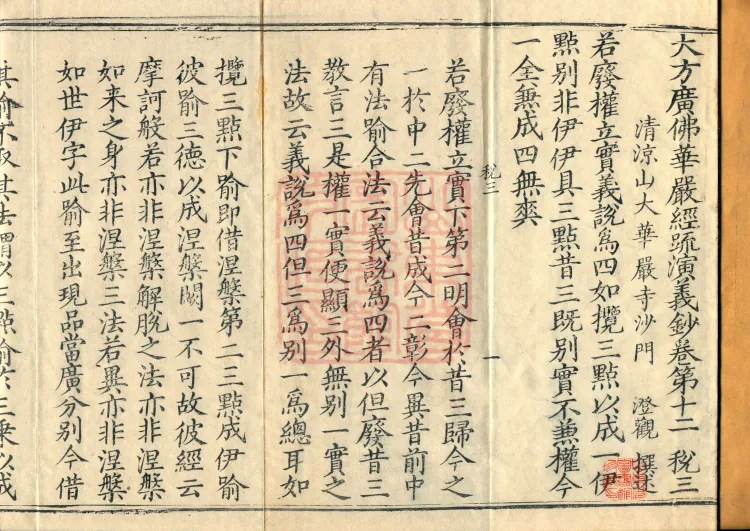 大方廣佛華嚴經疏演義鈔卷第十二 稅三
清涼山大華嚴寺沙門 澄觀 撰述
若廢權立實義說爲四如攬三點以成一伊
點別非伊伊具三點昔三既別實不兼權今
一全兼成四無爽
稅三
一
若廢權立實下第二明會於昔三歸今之
一於中二先會昔成今二彰今異昔前中
有法喻合法云義說爲四者以但廢昔三
教言三是權一實便顯三外無別一實之
法故云義說爲四但三爲別一爲總耳如
攬三點下喻即借涅槃第二三點成伊喻
彼喻三德以成涅槃闕一不可故彼經云
摩訶般若亦非涅槃解脫之法亦非涅槃
如來之身亦非涅槃三法若異亦非涅槃
如世伊字此喻至出現品當廣分別今借
其喻不取其法謂以三點喻於三乘以成